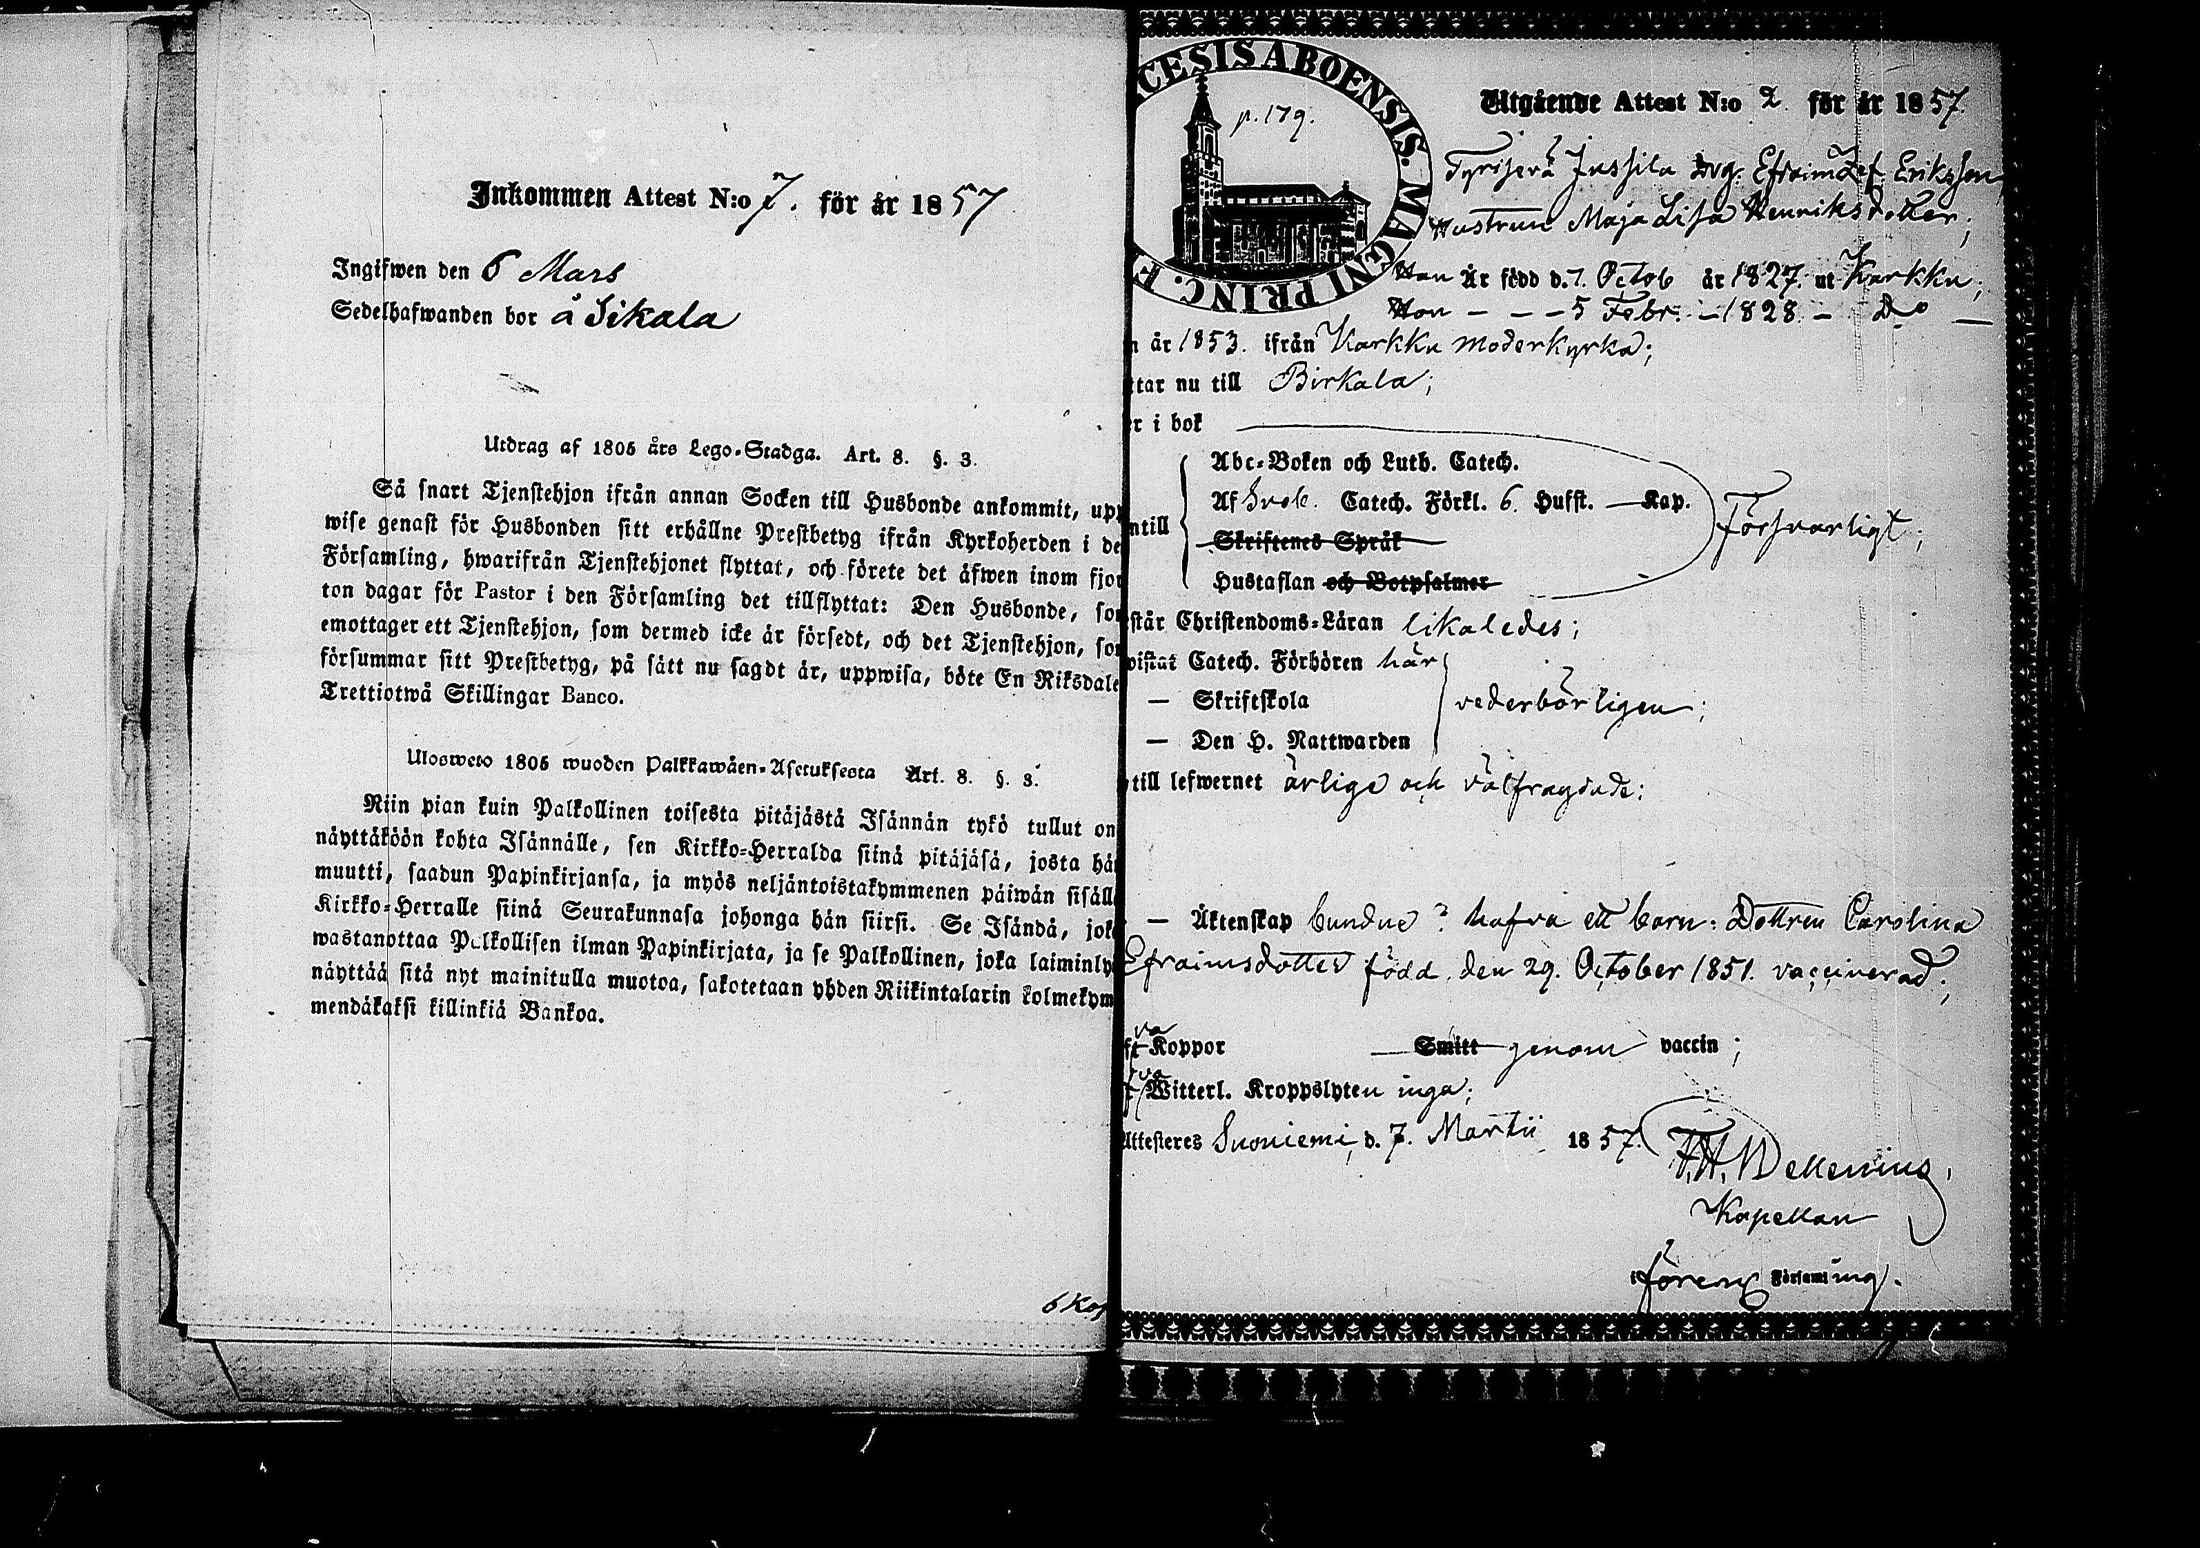 Inkommen Attest N:o 7. för år 1857
Ingifwen den 6 Mars
Sedelhafwanden bor å Sikala
Utdrag af 1805 års Lego-Stadga. Art. 8. §. 3.
Så snart Tjenstehjon ifrån annan Socken till Husbonde ankommit, upp
wise genast för Husbonden sitt erhållne Prestbetyg ifrån Kyrkoherden i de
Församling, hwarifrån Tjenstehjonet flyttat, och förete det äfwen inom fjor
ton dagar för Pastor i den Församling det tillflyttat: Den Husbonde, som
emottager ett Tjenstehjon, som dermed icke är försedt, och det Tjenstehjon, som
försummar sitt Prestbetyg, på sätt nu sagdt är, uppwisa, böte En Riksdale
Trettiotwå Skillingar Banco.
Ulosweto 1805 wuoden Palkkawäen-Asetuksesta Art. 8. §. 3.
Niin pian kuin Palkollinen toisesta pitäjästä Isännän tykö tullut on
näyttäköön kohta Isännälle, sen Kirkko-Herralda siinä pitäjäsä, josta hän
muutti, saadun Papinkirjansa, ja myös neljäntoistakymmenen päiwän sisäll
Kirkko-Herralle siinä Seurakunnasa johonga hän siirsi. Se Isändä, joka
wastanottaa Palkollisen ilman Papinkirjata, ja se Palkollinen, joka laiminly
näyttää sitä nyt mainitulla muotoa, sakotetaan yhden Riikintalarin kolmekym
mendäkaksi killinkiä Bankoa.
6 Kop
CESIS ABOENSIS. MAGNI PRINC. F
p. 179.
Utgående Attest N:o 2. för år 1857.
Jussila drg. Efraim Eriksson
Hustrun Maja Lisa Henriksdotter;
Han Är född d. 7. Octob år 1827. ut Karkku;
Hon - - - 5 Febr. - 1828. - Do -
n år 1853. ifrån Karkku moderkyrka;
ttar nu till Birkala;
r i bok
Abc-Boken och Luth. Catech.
Af Sveb. Catech. Förkl. 6. Husst. — Kap.
ntill
Skriftenes Språk
Hustaflan och Botpsalmer
Försvarligt;
står Christendoms-Läran likaledes;
wistat Catech. Förhören här
— Skriftskola
vederbörligen;
— Den H. Nattwarden
till lefwernet ärlige och välfrägdade;
— Äktenskap bundne? hafva ett barn: Dottren Carolina
Efraimsdotter född den 29. October 1851. vaccinerad;
va
ft Koppor — Smitt genom vaccin;
va
f Witterl. Kroppslyten inga;
Attesteres Suoniemi, d. 7. Martii 1857.
Kapellan
i fören. Församling.